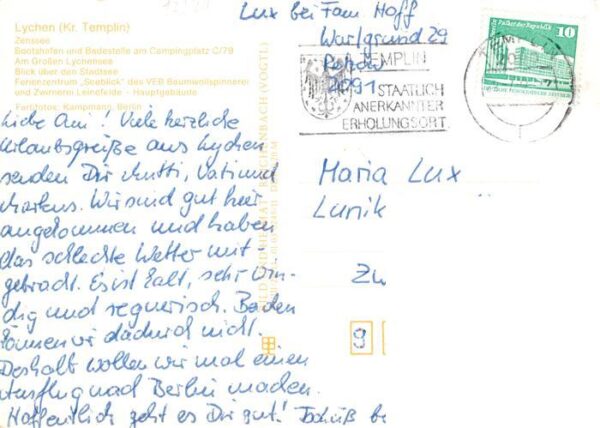 Lychen (Kr. Templin)
Zenssee
Bootshafen und Badestelle am Campingplatz C/79
Am Großen Lychensee
Blick über den Stadtsee
Ferienzentrum „Seeblick" des VEB Baumwollspinnerei
und Zwirnerei Leinefelde - Hauptgebäude
Farbfotos: Kampmann, Berlin
Liebe Omi! Viele herzliche
Urlaubsgrüße aus Lychen
senden Dir Mutti, Vati und
Markus. Wir sind gut hier
angekommen und haben
das schlechte Wetter mit-
gebracht. Es ist kalt, sehr win-
dig und regnerisch. Baden
können wir dadurch nicht.
Deshalb wollen wir mal einen
Ausflug nach Berlin machen.
Hoffentlich geht es Dir gut! Tschüß
BILD UND HEIMAT REICHENBACH (VOGTL)
Lux bei Fam. Hoff
29
2091
TEMPLIN
STAATLICH
ANERKANNTER
ERHOLUNGSORT
Palast der Republik
10
DDR
Maria Lux
Zw
9